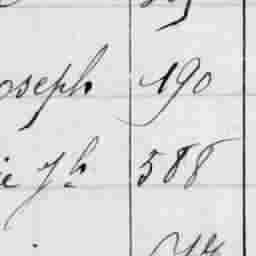 oseph 190
ie Jh 588